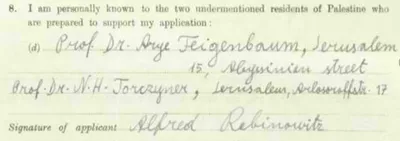 8. I am personally known to the two undermentioned residents of Palestine who
are prepared to support my application:
(d) Prof. Dr. Arye Feigenbaum, Jerusalem
15, Abyssinien street
Prof. Dr. N.H. Torczyner, Jerusalem, Arlosoroffstr. 17
Signature of applicant Alfred Rabinowitz